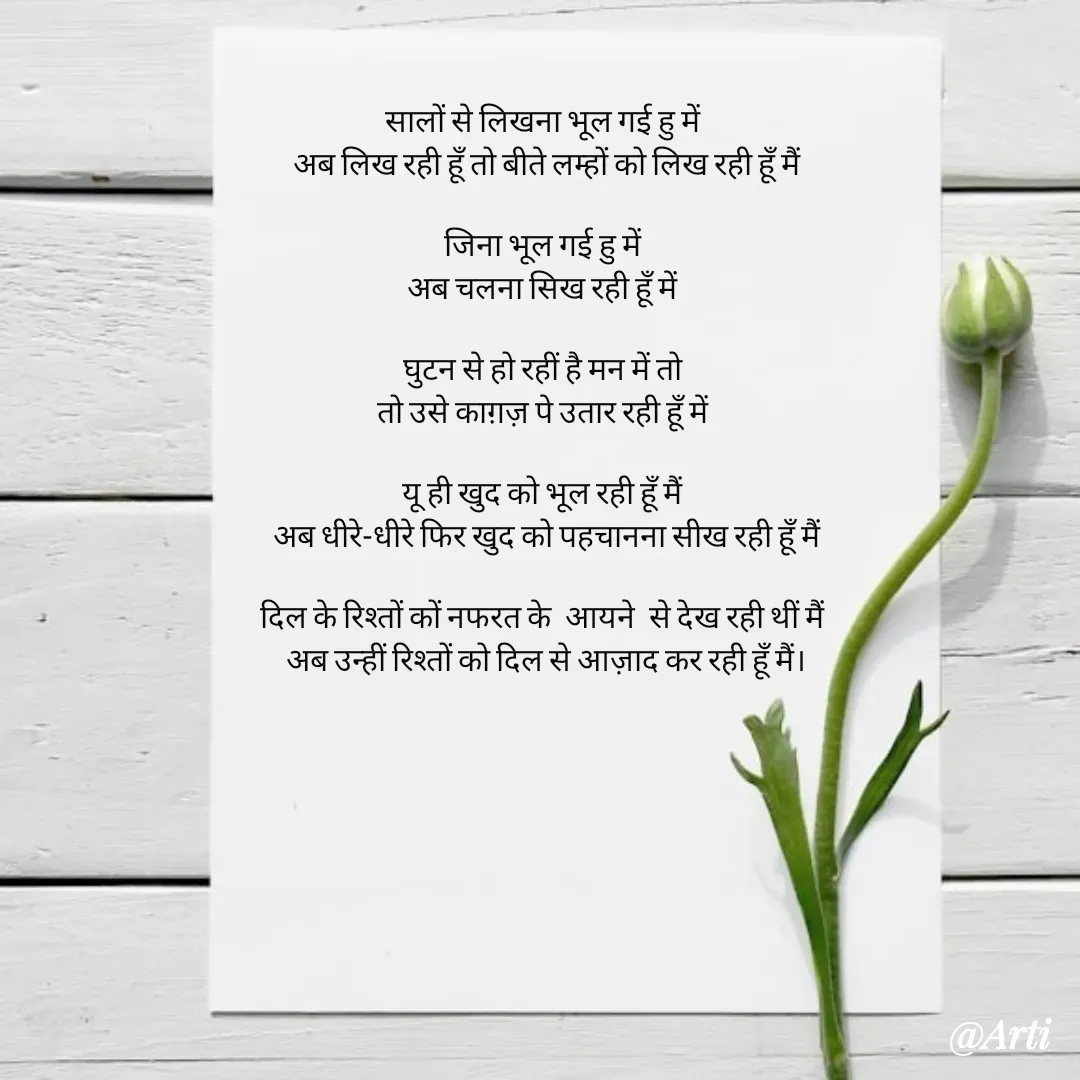 सालों से लिखना भूल गई हु में
अब लिख रही हूँ तो बीते लम्हों को लिख रही हूँ मैं
जिना भूल गई हु में
अब चलना सिख रही हूँ में
घुटन से हो रहीं है मन में तो
तो उसे काग़ज़ पे उतार रही हूँ में
यू ही खुद को भूल रही हूँ मैं
अब धीरे-धीरे फिर खुद को पहचानना सीख रही हूँ मैं
दिल के रिश्तों कों नफरत के आयने से देख रही थीं मैं
अब उन्हीं रिश्तों को दिल से आज़ाद कर रही हूँ मैं।
@Arti